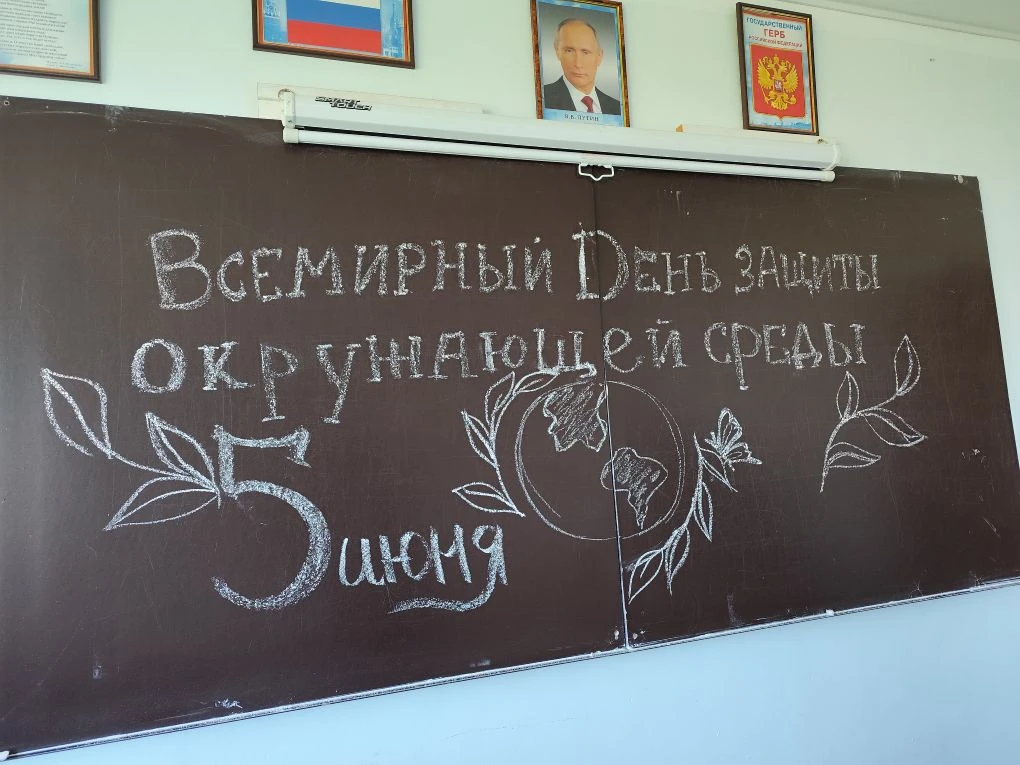 ГОСУДАРСТВЕННЫЙ
ГЕРБ
РОССИЙСКОЙ ФЕДЕРАЦИИ
В.В. ПУТИН
Всемирный День защиты
окружающей среды
5 июня